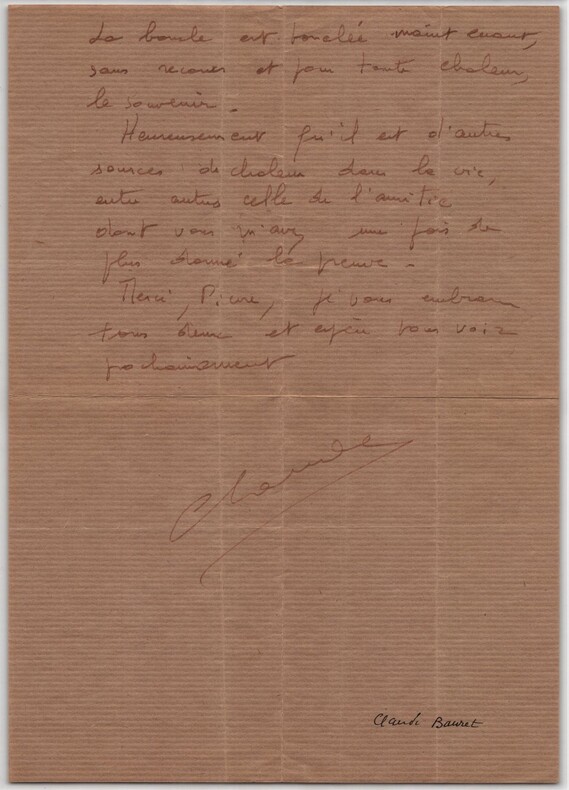 La boucle est bouclée maintenant,
sans recours et pour toute chaleur,
le souvenir.
Heureusement qu'il est d'autres
sources de chaleur dans la vie,
entre autres celle de l'amitié
dont vous m'avez une fois de
plus donné la preuve.
Merci, Pierre, je vous embrasse
tous deux et espère vous voir
prochainement
Claude
Claude Bauret